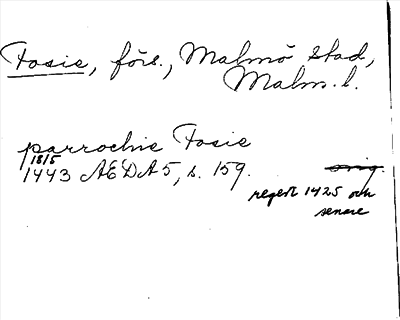 Fosie, förs., Malmö stad,
Malm. l.
parrochie Fosie
18/5
1443 AEDA 5, s. 159. orig.
regest 1425 och
senare